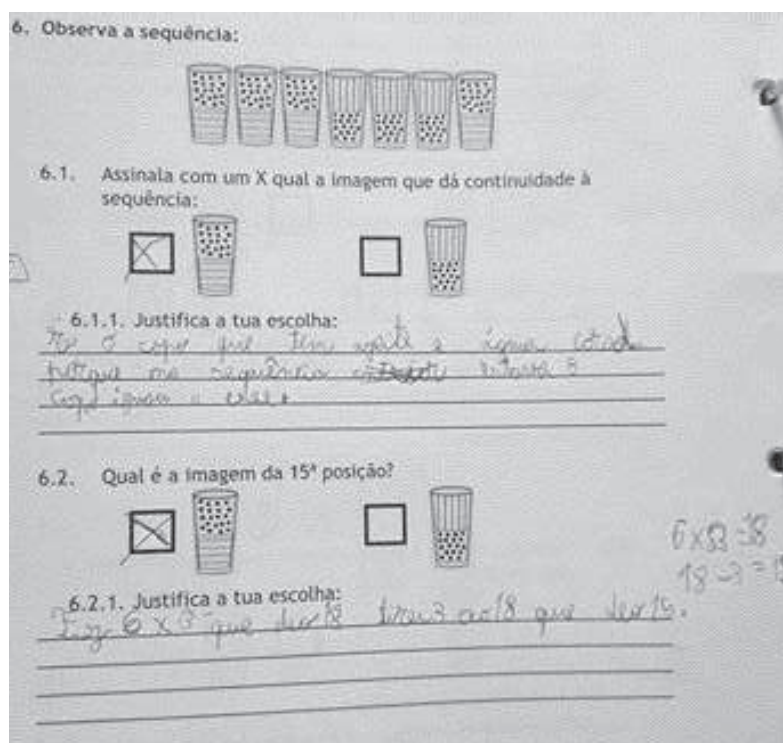 6. Observa a sequência:
6.1. Assinala com um X qual a imagem que dá continuidade à
sequência:
6.1.1. Justifica a tua escolha:
o copo que tem
porque na sequência 3
6.2. Qual é a imagem da 15ª posição?
6 x 3 = 18
18 - 3 =
6.2.1. Justifica a tua escolha:
Fiz 6 x 3 que deu 18 tirei 3 ao 18 que deu 15.